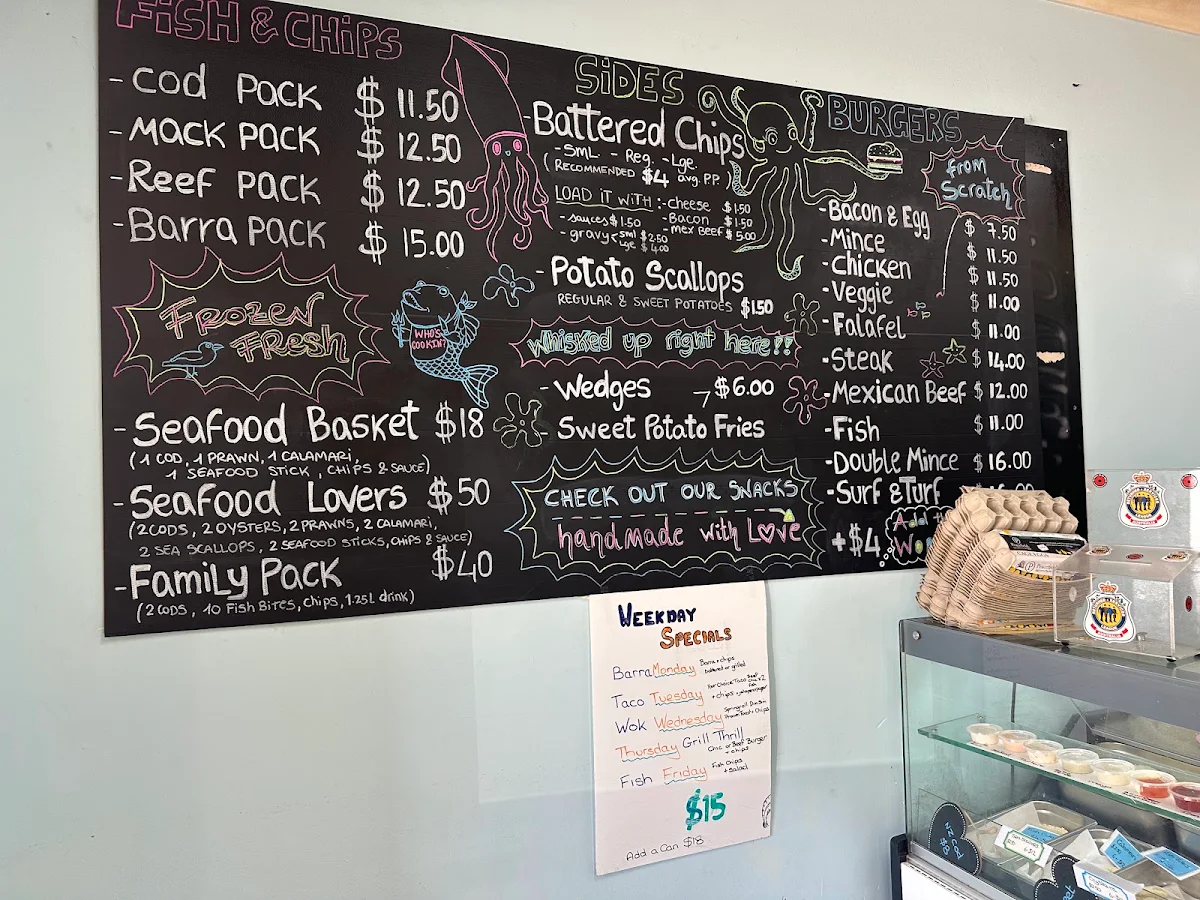 FISH & CHIPS
- COD PACK $ 11.50
- MACK PACK $ 12.50
- Reef PACK $ 12.50
- Barra PACK $ 15.00
FROZEN
FRESH
WHO'S
COOKIN?
- Seafood Basket $18
(1 COD, 1 PRAWN, 1 CALAMARI,
1 SEAFOOD STICK, CHIPS & SAUCE)
- Seafood Lovers $50
(2 CODS, 2 OYSTERS, 2 PRAWNS, 2 CALAMARI,
2 SEA SCALLOPS, 2 SEAFOOD STICKS, CHIPS & SAUCE)
- Family Pack $40
(2 CODS, 10 Fish Bites, Chips, 1.25L drink)
SIDES
- Battered Chips
- SML - Reg. - Lge.
(RECOMMENDED $4 avg. P.P.)
LOAD IT WITH :- cheese $1.50
- sauces $1.50 - Bacon $1.50
- gravy < sml $2.50 - Mex Beef $5.00
Lge $4.00
- Potato Scallops
REGULAR & SWEET POTATOES $1.50
Whisked up right here!!
- Wedges $6.00
- Sweet Potato Fries
CHECK OUT OUR SNACKS
handmade with Love
BURGERS
from
Scratch
- Bacon & Egg $ 7.50
- Mince $ 11.50
- Chicken $ 11.50
- Veggie $ 11.00
- Falafel $ 11.00
- Steak $ 14.00
- Mexican Beef $ 12.00
- Fish $ 11.00
- Double Mince $ 16.00
- Surf & Turf
+ $4
WEEKDAY
SPECIALS
Barra Monday Barra & chips
battered or grilled
Taco Tuesday
Wok Wednesday
Thursday Grill Thrill
Chic or Beef Burger
+ chips
Fish Friday Fish Chips
+ salad
$15
Add a Can $18